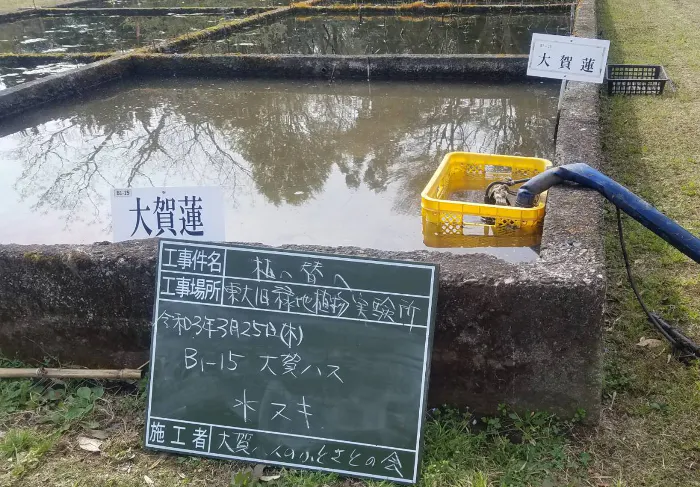 大賀蓮
B1-15
大賀蓮
工事件名 植へ替へ
工事場所 東大旧緑地植物実験所
令和3年3月25日(木)
B1-15 大賀ハス
水ヌキ
施工者 大賀ハスのふるさとの会